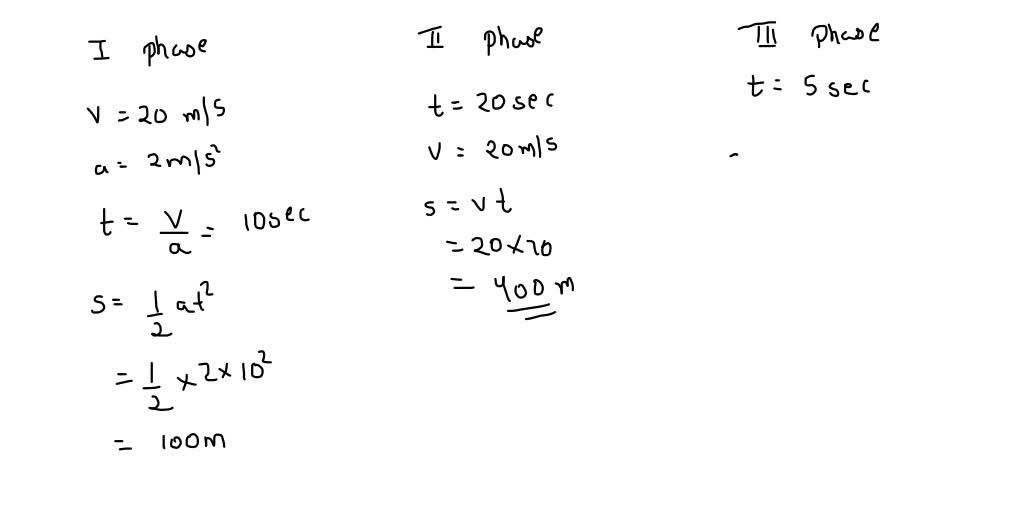 I phase
v = 20 m/s
a = 2m/s²
t = v/a = 10sec
s = 1/2 at²
= 1/2 × 2 × 10²
= 100m
II phase
t = 20sec
v = 20m/s
s = vt
= 20 × 20
= 400m
III phase
t = 5sec